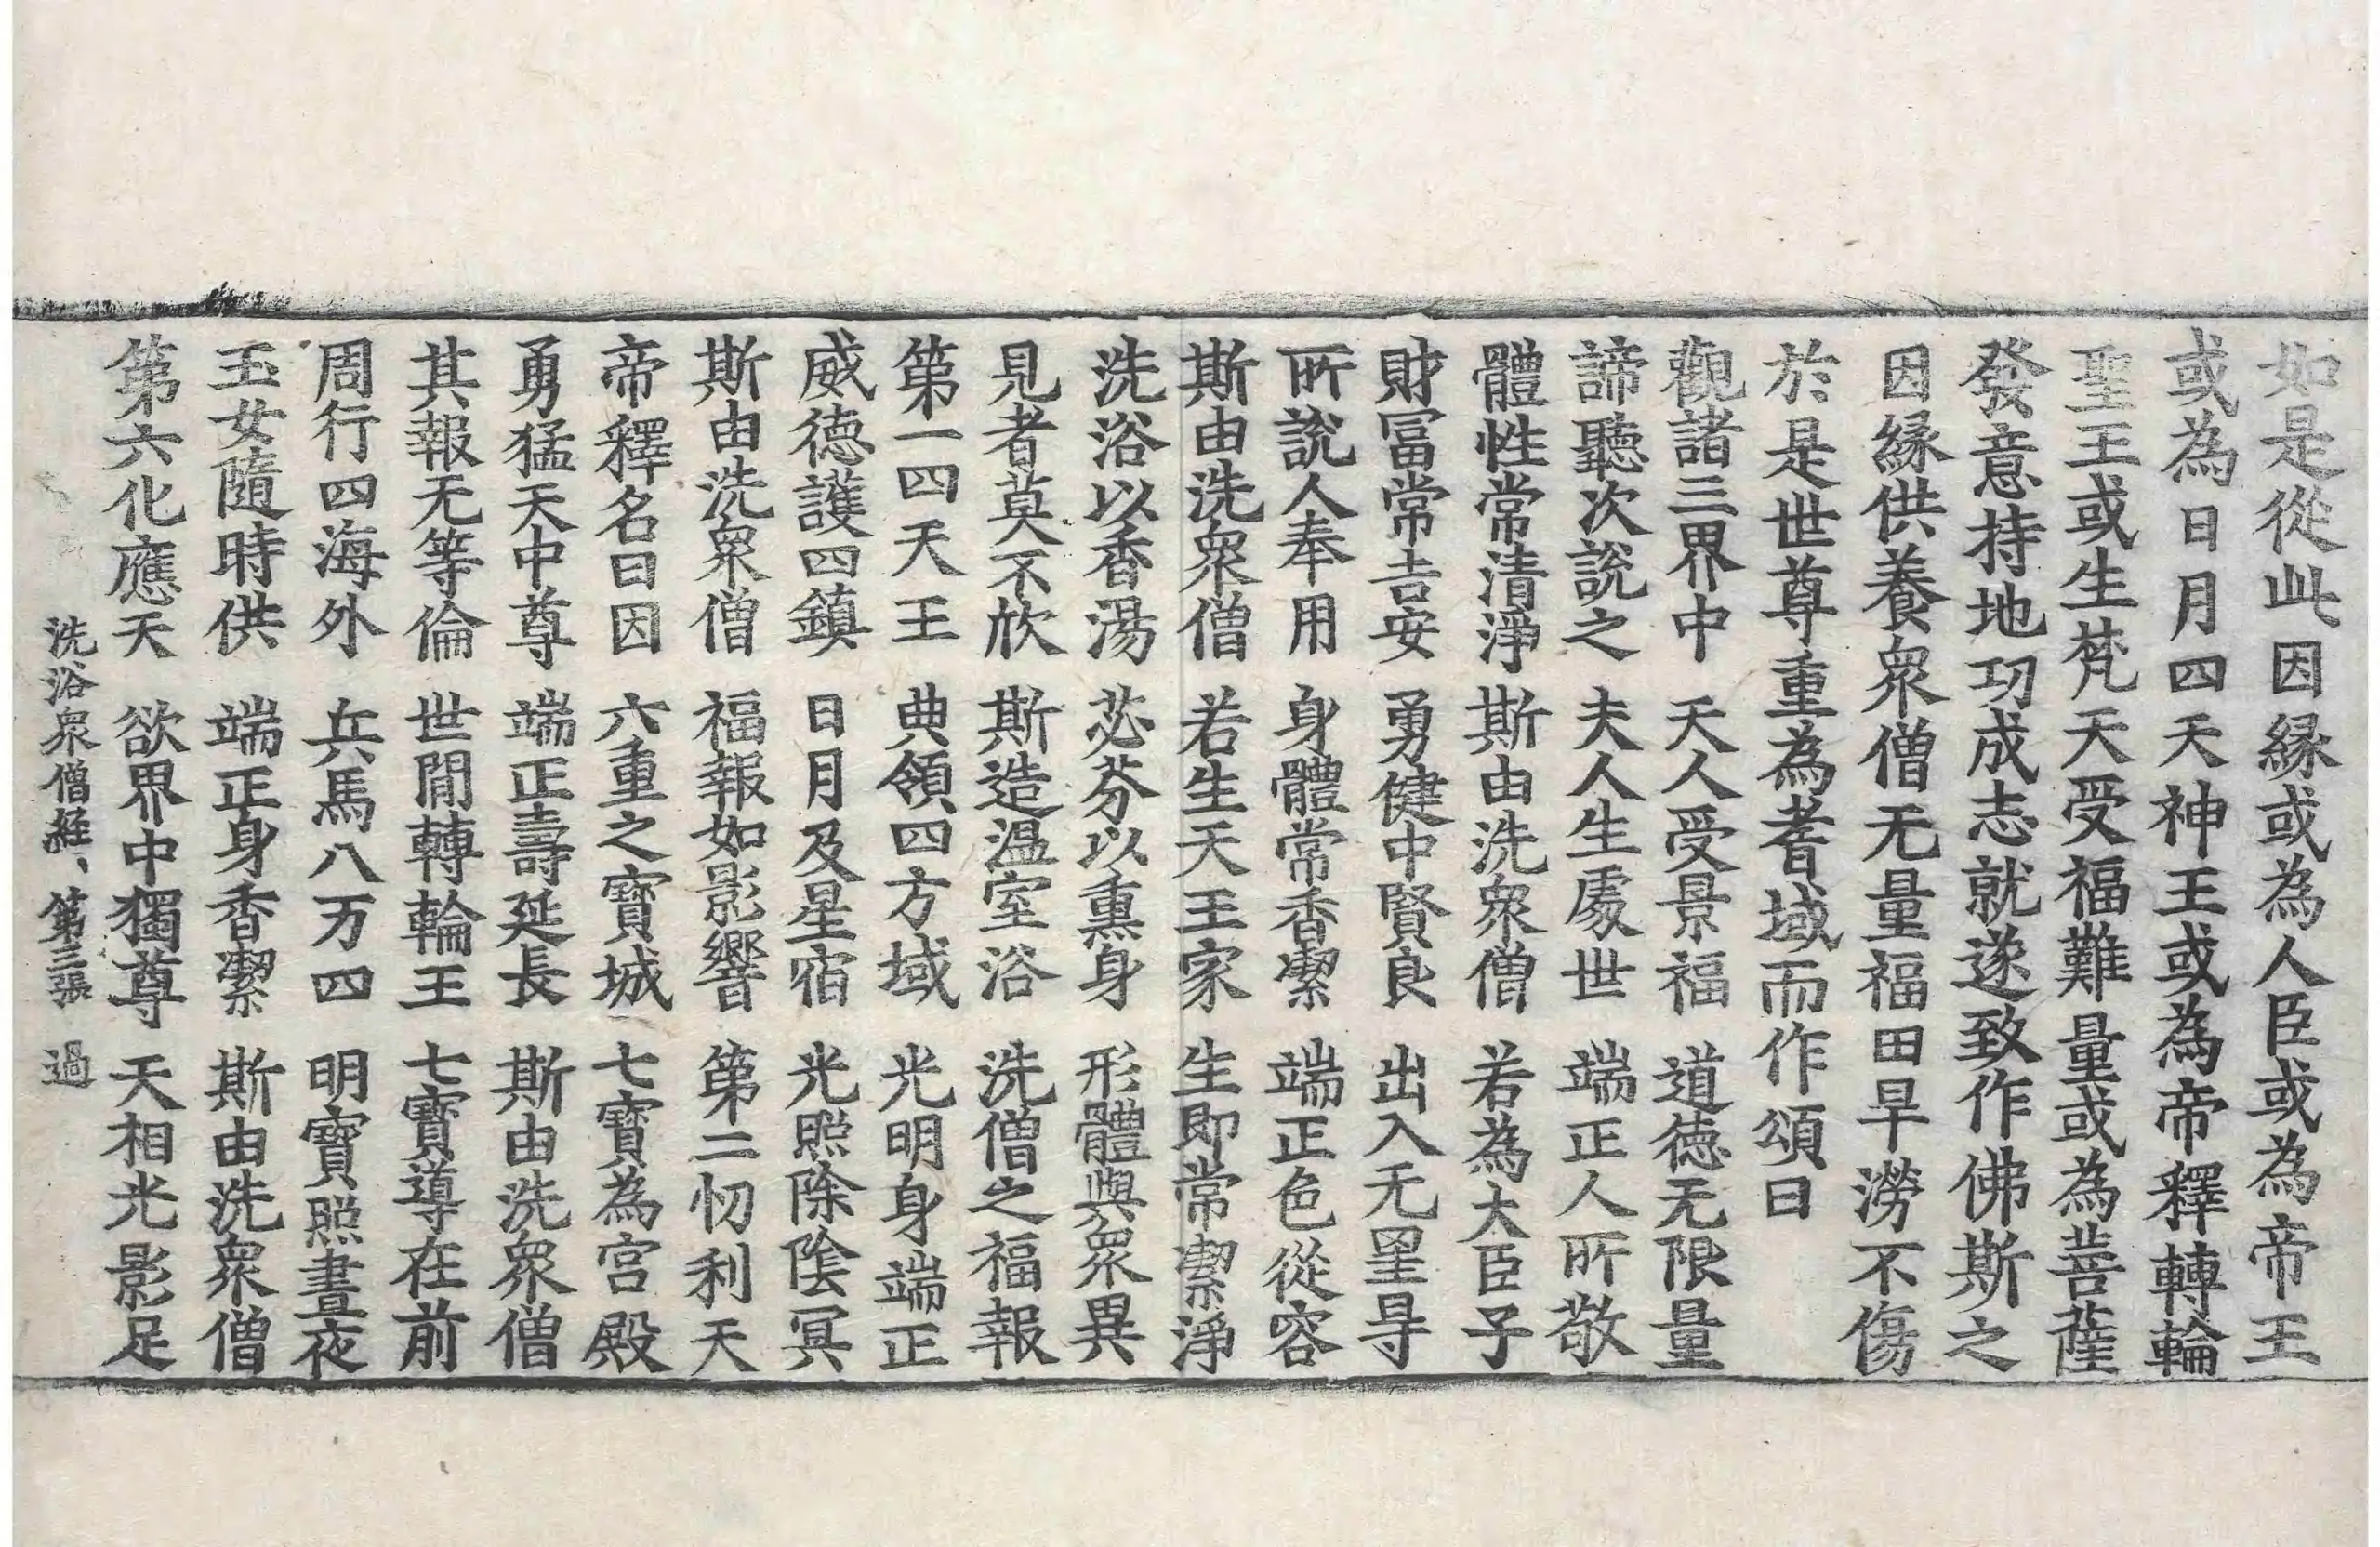 如是從此因縁或為人臣或為帝王
或為日月四天神王或為帝釋轉輪
聖王或生梵天受福難量或為菩薩
發意持地功成志就遂致作佛斯之
因縁供養衆僧无量福田旱澇不傷
於是世尊重為耆域而作頌曰
觀諸三界中　天人受景福　道德无限量
諦聽次說之　夫人生處世　端正人所敬
體性常清淨　斯由洗衆僧　若為大臣子
財冨常吉安　勇健中賢良　出入无罣㝵
所說人奉用　身體常香潔　端正色從容
斯由洗衆僧　若生天王家　生即常潔淨
洗浴以香湯　苾芬以熏身　形體與衆異
見者莫不欣　斯造温室浴　洗僧之福報
第一四天王　典領四方域　光明身端正
威德護四鎮　日月及星宿　光照除陰冥
斯由洗衆僧　福報如影響　第二忉利天
帝釋名曰因　六重之寶城　七寶為宮殿
勇猛天中尊　端正壽延長　斯由洗衆僧
其報无等倫　世閒轉輪王　七寶導在前
周行四海外　兵馬八万四　明寶照晝夜
玉女隨時供　端正身香潔　斯由洗衆僧
第六化應天　欲界中獨尊　天相光影足
洗浴衆僧経、第三張　過